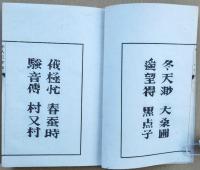 冬天渺 大桑圃
遠望得 黑点子
俄極忙 春蚕時
騷音傳 村又村